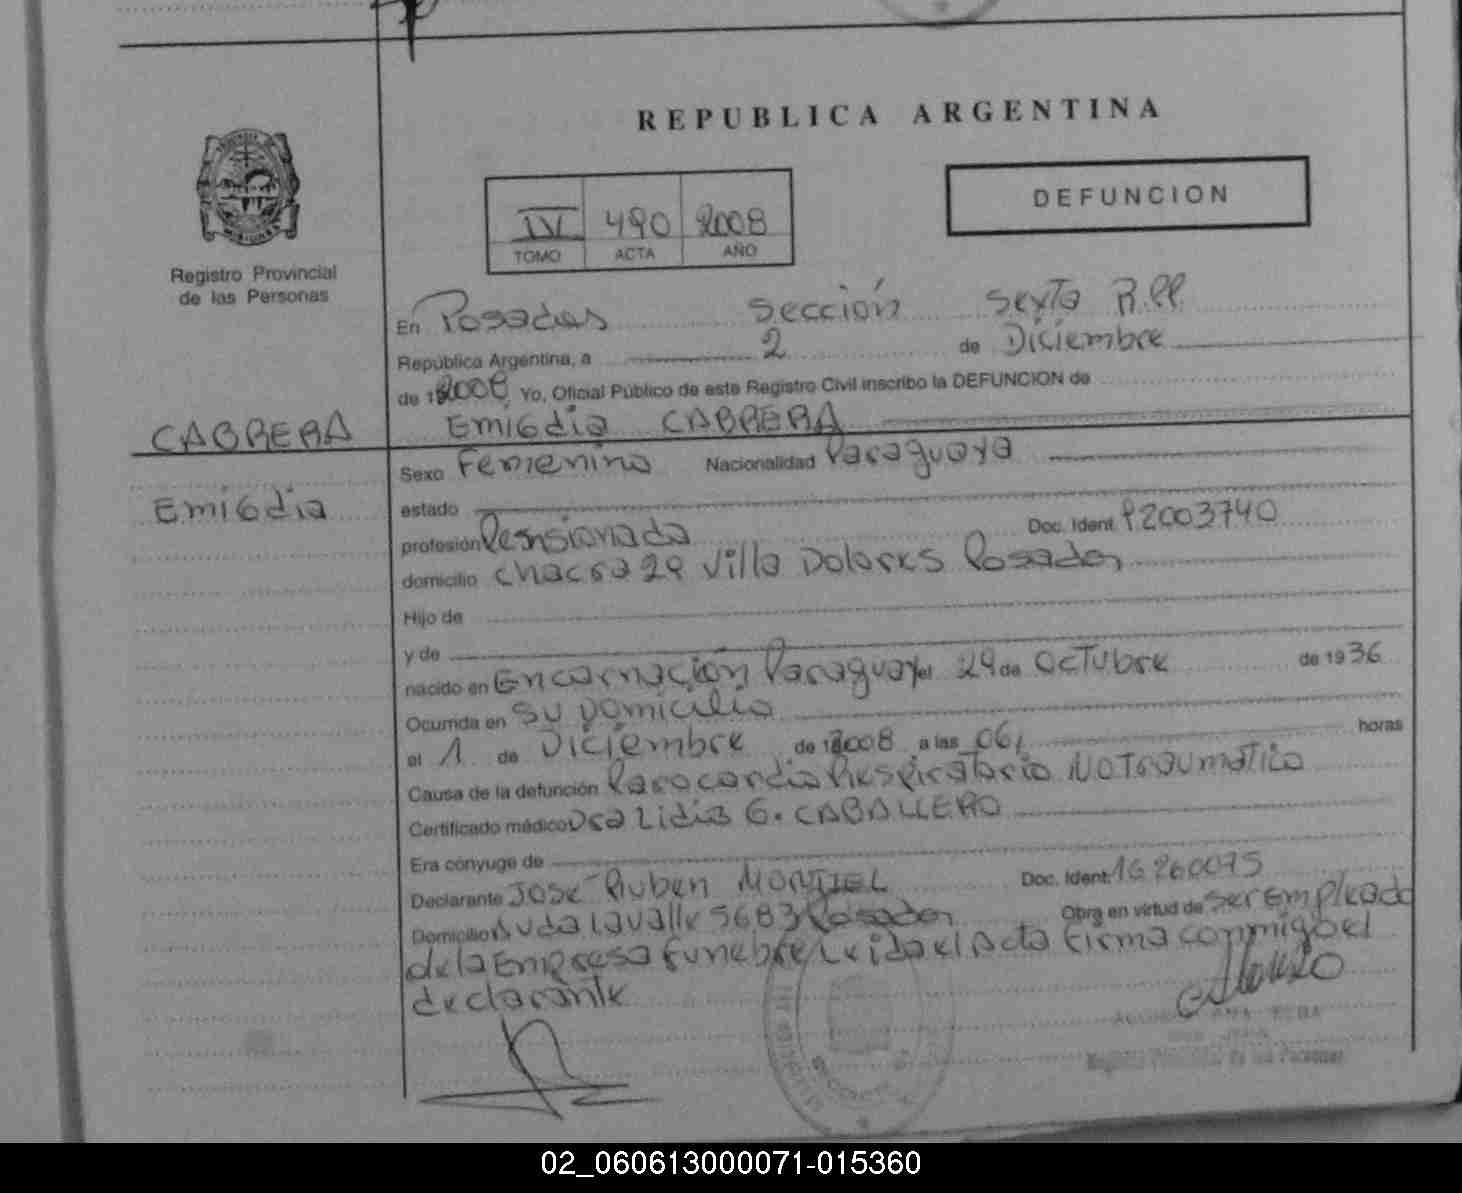 REPUBLICA ARGENTINA
DEFUNCION
IV 490 2008
TOMO ACTA AÑO
Registro Provincial
de las Personas
En Posadas Sección Sexta R.PP.
República Argentina, a 2 de Diciembre
de 12008 Yo, Oficial Público de este Registro Civil inscribo la DEFUNCION de
CABRERA
Emigdia CABRERA
Emigdia
Sexo Femenino Nacionalidad Paraguaya
estado
profesión Pensionada Doc. Ident. P2003740
domicilio Chacra 29 Villa Dolores Posadas
Hijo de
y de
nacido en Encarnación Paraguay el 29 de Octubre de 1936
Ocurrida en su Domicilio
el 1 de Diciembre de 12008 a las 06, horas
Causa de la defunción Parocardio Respiratorio NO Traumático
Certificado médico Dra Lidia G. CABALLERO
Era cónyuge de
Declarante José Ruben MONTIEL Doc. Ident. 16260075
Domicilio Avda Lavalle 5683 Posadas Obra en virtud de ser empleado
de la Empresa Funebre Leida el Acta firma conmigo el
declarante
Registro Provincial de las Personas
02_060613000071-015360